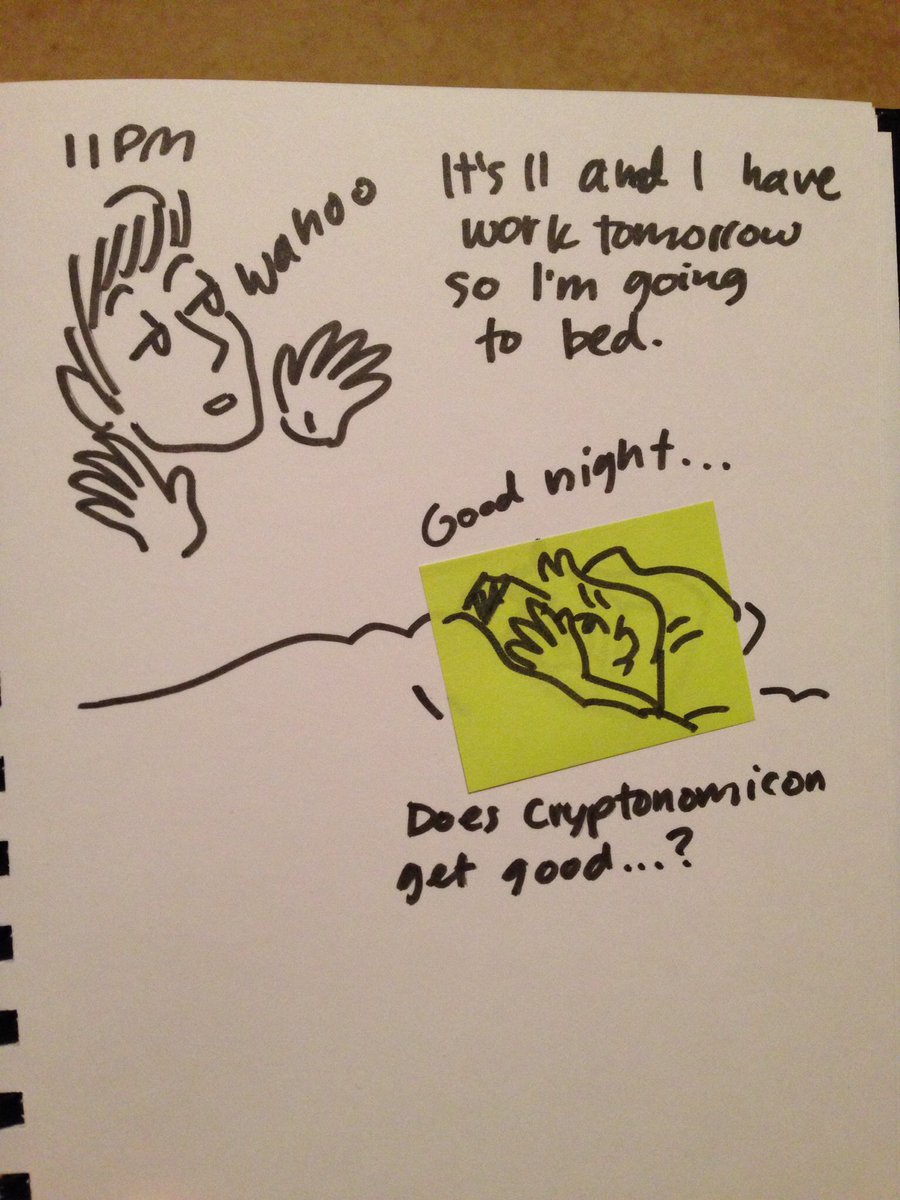 11PM
wahoo
It's 11 and I have
work tomorrow
so I'm going
to bed.
Good night...
Does Cryptonomicon
get good...?